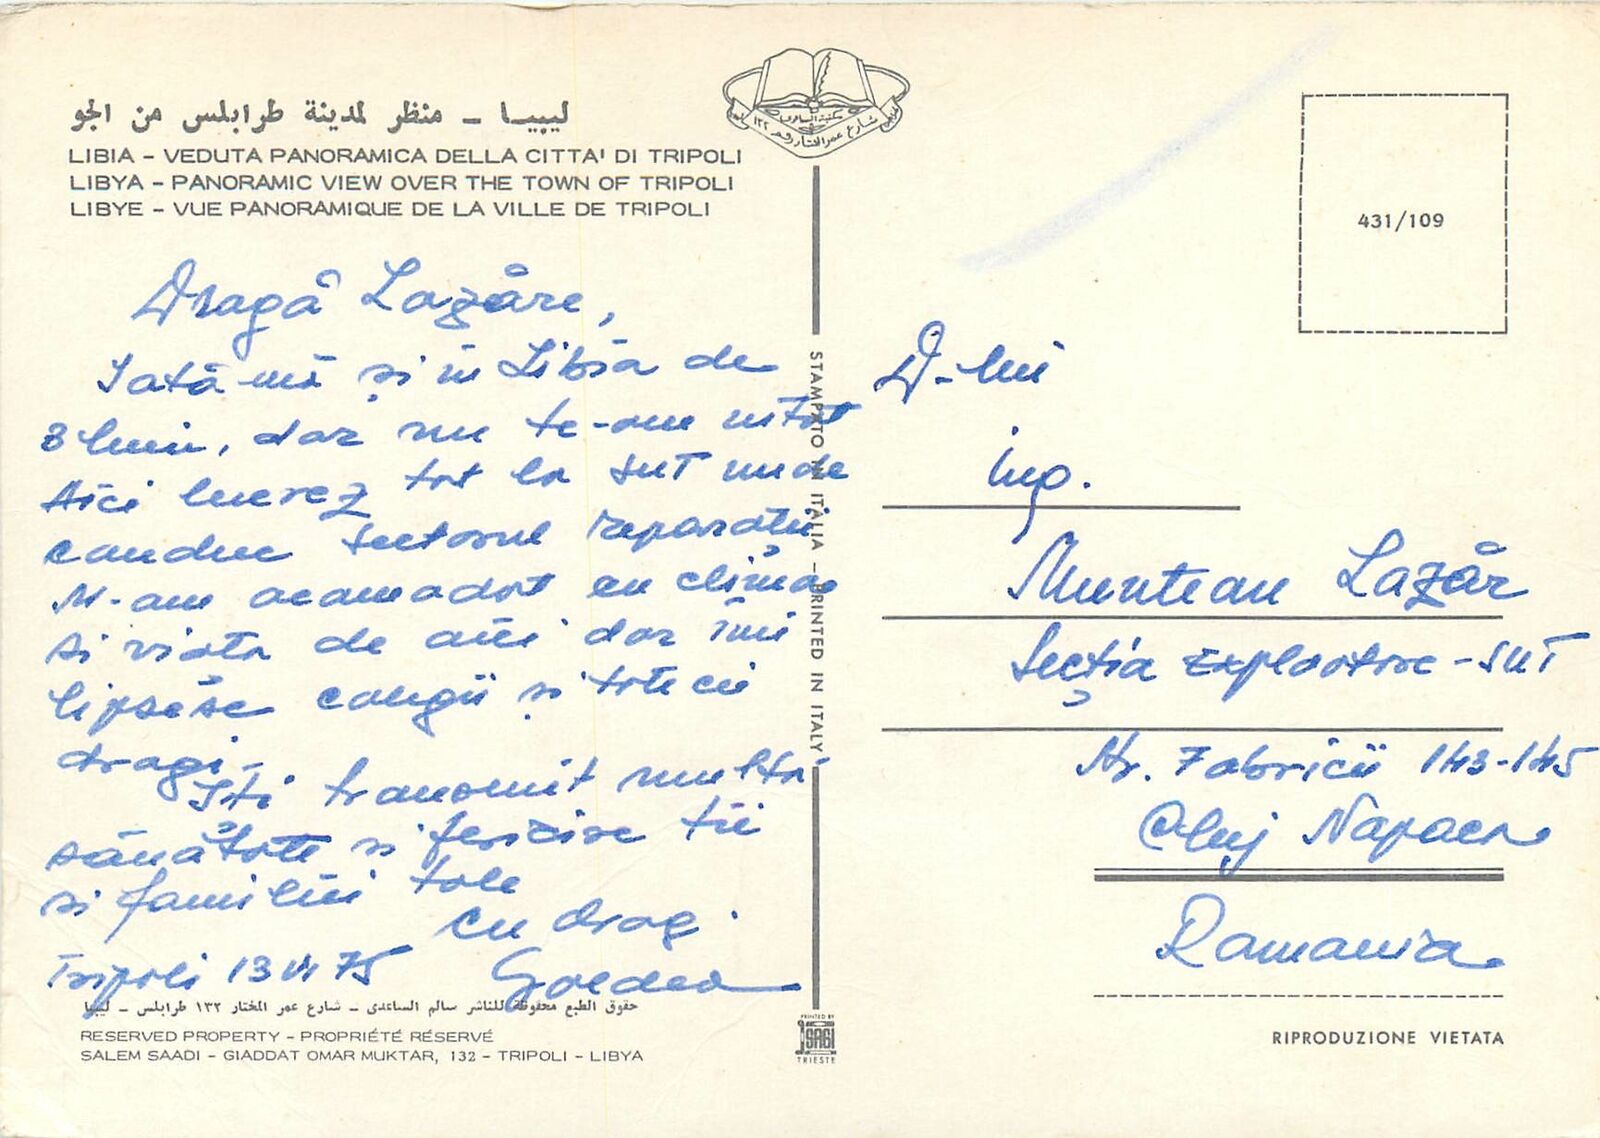 ليبيــا – منظر لمدينة طرابلس من الجو
LIBIA – VEDUTA PANORAMICA DELLA CITTA' DI TRIPOLI
LIBYA – PANORAMIC VIEW OVER THE TOWN OF TRIPOLI
LIBYE – VUE PANORAMIQUE DE LA VILLE DE TRIPOLI
Dragă Lazăre,
Iată-mă și în Libia de
3 luni, dar nu te-am uitat
Aici lucrez tot la SUT unde
conduc sectorul reparații
M-am acomodat cu clima
si viata de aici dar îmi
lipsesc colegii și toti cei
dragi.
Iti transmit multă
sănătate si fericire tie
si familiei tale
cu drag.
Tripoli 13 VI 75
حقوق الطبع محفوظة للناشر سالم الساعدى – شارع عمر المختار ١٣٢ طرابلس – ليبيا
RESERVED PROPERTY – PROPRIÉTÉ RÉSERVÉ
SALEM SAADI – GIADDAT OMAR MUKTAR, 132 – TRIPOLI – LIBYA
شارع عمر المختار رقم ١٣٢
STAMPATO IN ITALIA – PRINTED IN ITALY
PRINTED BY
SAGI
TRIESTE
431/109
D-lui
ing.
Muntean Lazăr
Secția Exploatare - SUT
Str. Fabricii 143-145
Cluj Napoca
Romania
RIPRODUZIONE VIETATA